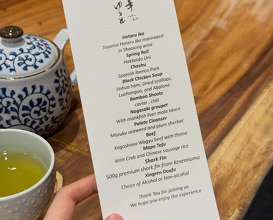 幸
ゆうと
Hotaru Ika
Toyama Hotaru Ika marinated
in Shaoxing wine
Spring Roll
Hokkaido Uni
Chashu
Spanish Iberico Pork
Black Chicken Soup
Jinhua ham, Dried scallops,
and Abalone
Bamboo Shoots
caviar , chili
Nagasaki grouper
With monkfish liver malu sauce
Palate Cleanser
Mozuku seaweed and plum sherbet
Beef
Kagoshima Wagyu beef with thyme
Mapo Tofu
With Crab and Chinese sausage rice
Shark Fin
500g premium shark fin from Kesennuma
Xingren Doufu
Choice of Alcohol or Non-alcohol
Thank You for joining us.
We hope you enjoy the experience